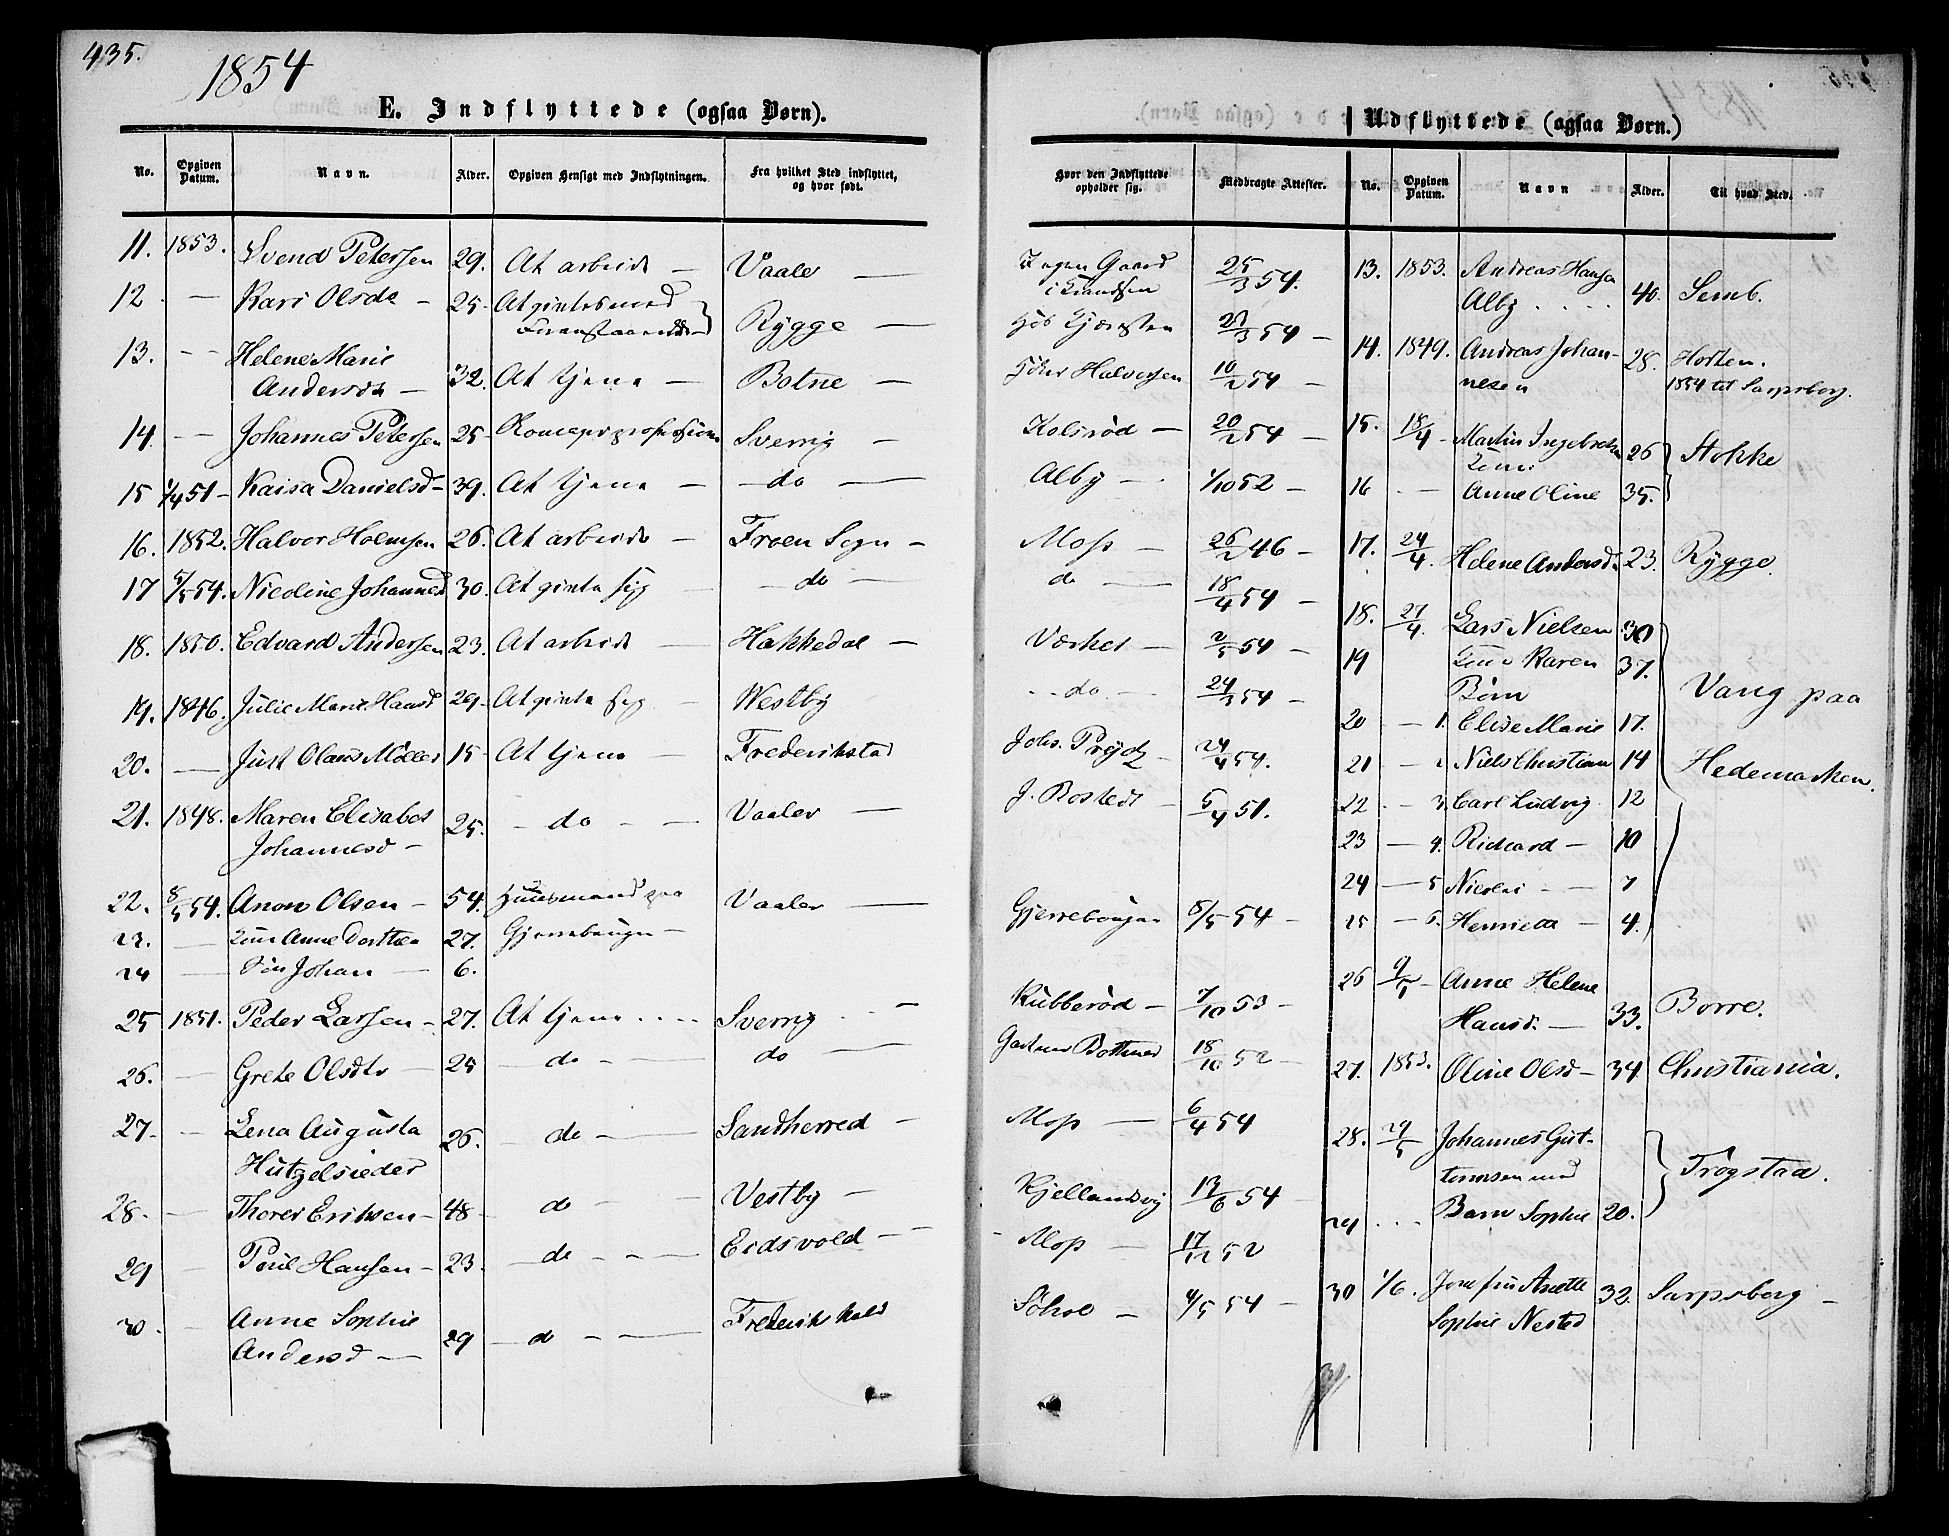 435.
1854
E. Indflyttede (ogsaa Børn).
No. Opgiven Datum. Navn. Alder. Opgiven Hensigt med Indflytningen. Fra hvilket Sted indflyttet, og hvor født.
11. 1853. Svend Petersen 29. At arbeide — Vaaler —
12 — Kari Olsdr — 25 At giftes med Rygge —
13. — Helene Marie
Andersdr — 32. At tjene — Botne —
14. — Johannes Petersen 25 Sverrig —
15 1/4 51 — Kaisa Danielsd — 39. At tjene — do —
16. 1852. Halvor Holmsen 26. At arbeide — Froen Sogn —
17 5/5 54. Nicoline Johannesd 30. At gifte sig — do —
18. 1850. Edvard Andersen 23. At arbeide — Hakkedal —
19. 1846. Julie Marie Hansd 29 — At gifte sig — Westby
20. — Just Olaus Møller 15 — At tjene — Frederikstad
21. 1848. Maren Elisabet
Johannesd — 25. — do — Vaaler —
22. 8/5 54. Anon Olsen — 54. Huusmand paa Vaaler —
23. — Anne Dorthea 27. Gjerrebougen —
24 — Søn Johan — 6.
25 1851. Peder Larsen — 27. At tjene .... Sverrig —
26. — Grete Olsdtr — 25 — do — do —
27. — Lena Augusta
Hutzelsieder 26. — do — Sandherred —
28. — Thorer Eriksen — 48 — do — Vestby —
29 — Poul Hansen — 23. — do — Eidsvold —
30. — Anne Sophie
Andersd — 29 — do — Frederikshald
Udflyttede (ogsaa Børn.)
Hvor den Indflyttede opholder sig. Medbragte Attester. No. Opgiven Datum. Navn Alder. Til hvad Sted.
Gaard 25/3 54. 13. 1853. Andreas Hansen
Alby .... 40. Semb.
27/3 54 — 14. 1849. Andreas Johan-
nesen 28. Horten.
1854 til Sarpsborg.
Halvorsen 10/2 54 —
Kolsrød — 20/2 54 — 15. 18/4 — Martin Ingebretsen 26 Stokke
Alby — 1/10 52 — 16 — Anne Oline 35.
Moss — 26/2 46 — 17. 24/4. Helene Andersd 23. Rygge.
do — 18/4 54 — 18. 27/4. Lars Nielsen 30
Værket — 2/5 54 — 19 Karen 37. Vang paa
Børn
do — 24/3 54 — 20 — 1. Elise Marie 17.
Johs. Prydz — 24/4 54. 21 — 2 Niels Christian 14 Hedemarken.
J. Rostedt — 5/4 51. 22. — 3. Carl Ludvig. 12
23 — 4. Richard — 10
24 — 5 Nicolai — 7
Gjerrebougen 8/5 54 — 25 — 6. Henriette — 4.
26 9/5 Anne Helene
Hansd. — 33. Borre.
Kubberød — 7/10 53 —
Gartner Bothner 18/10 52 — 27. 1853. Oline Olsd — 34 Christiania.
Moss — 6/4 54 28. 29/5 Johannes Gut-
tormsen med Trøgstad.
Kjellandsvig 13/6 54 29 ... Barn Sophie 20.
Moss — 17/12 52
Sohol — 4/5 54 — 30 1/6. Josefine Anette 32. Sarpsborg —
Sophie Nested